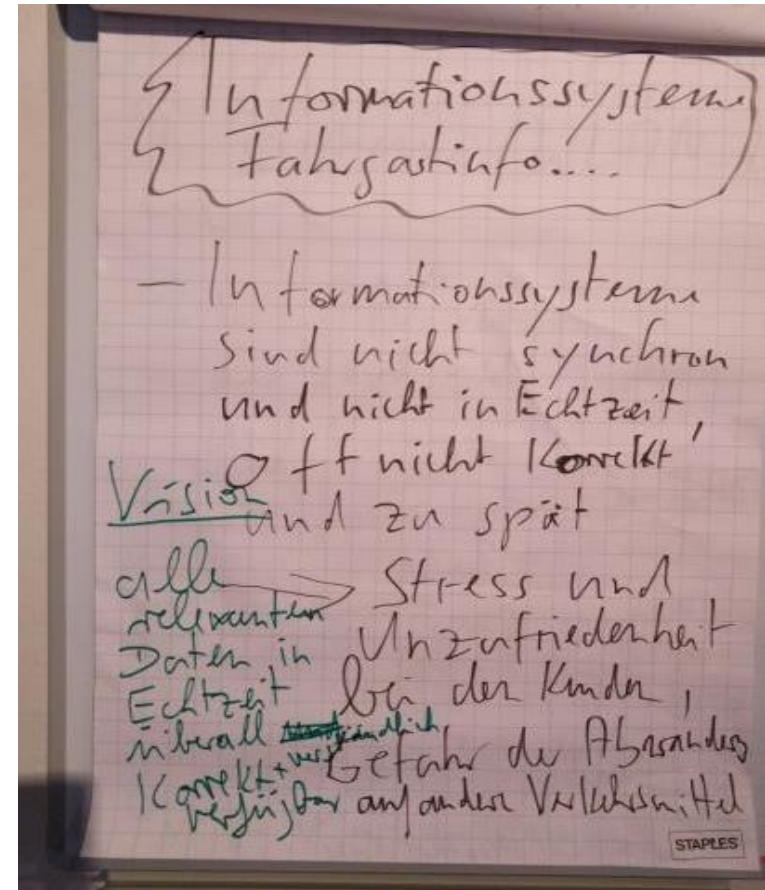 Informationssysteme
Fahrgastinfo....
- Informationssysteme
sind nicht synchron
und nicht in Echtzeit,
Oft nicht Korrekt
und zu spät
Stress und
Unzufriedenheit
bei den Kunden,
Gefahr der Abwanderg
auf andere Verkehrsmittel
Vision
alle
relevanten
Daten in
Echtzeit
überall
Korrekt + verständlich
verfügbar
STAPLES